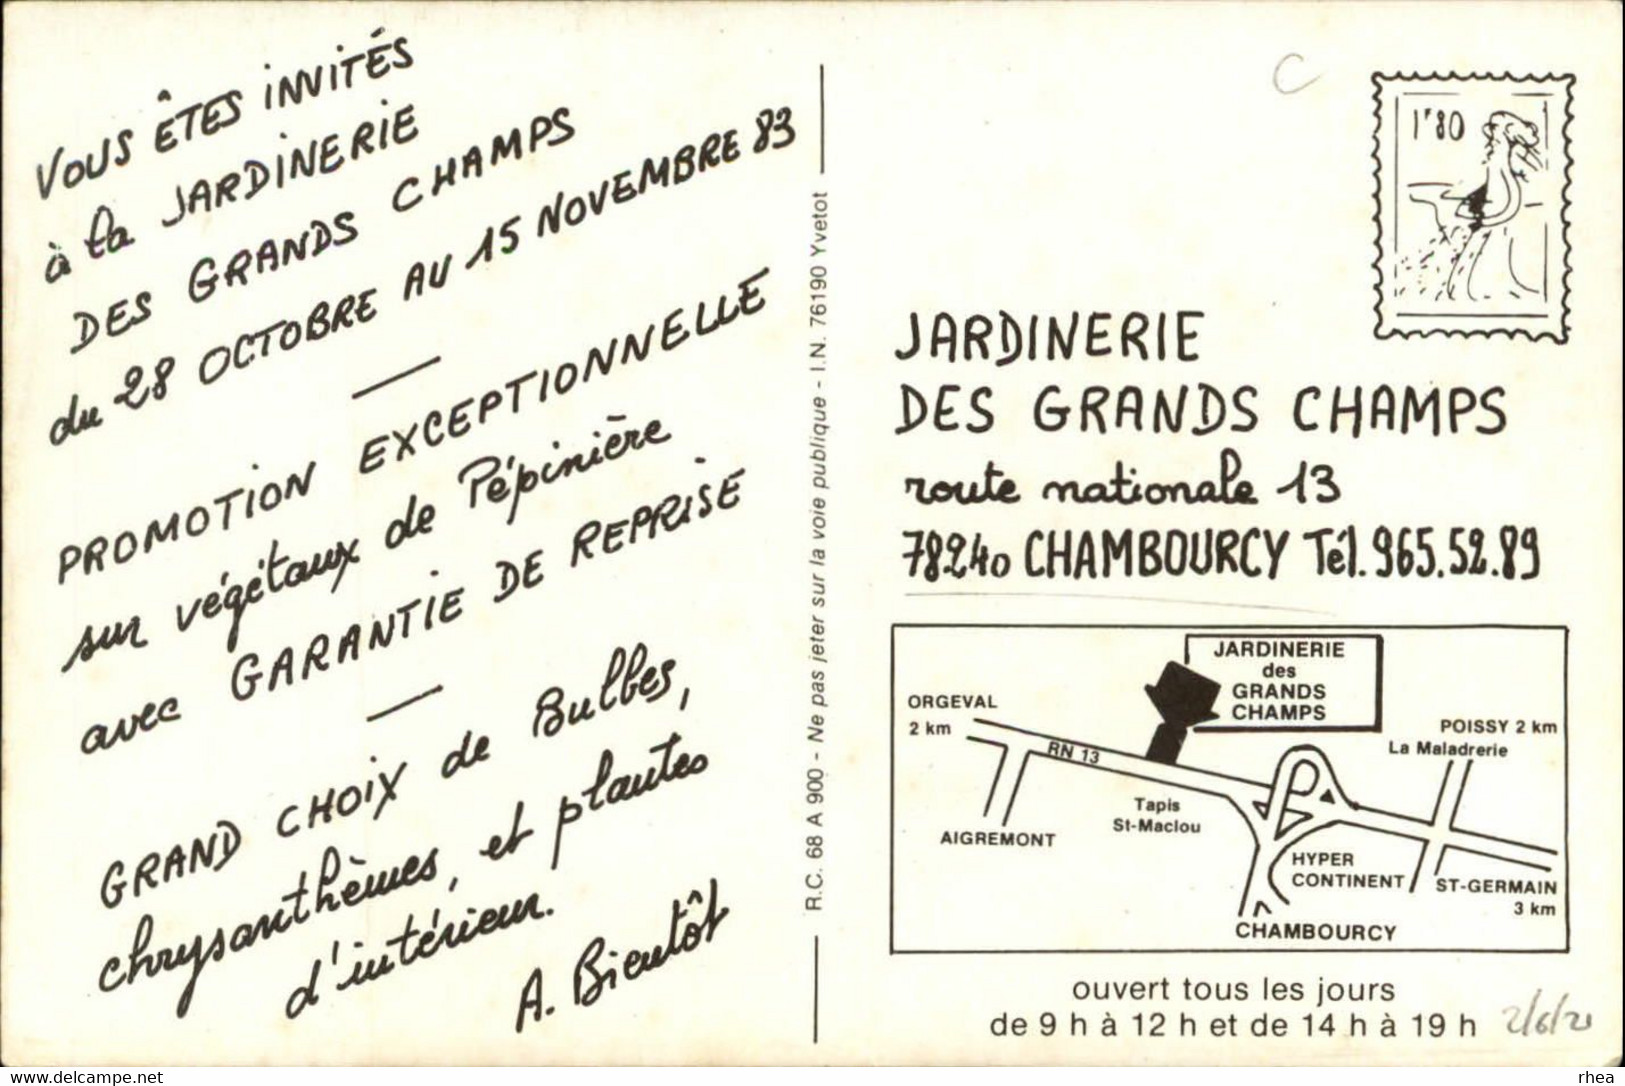 VOUS ÊTES INVITÉS
à la JARDINERIE
DES GRANDS CHAMPS
du 28 OCTOBRE AU 15 NOVEMBRE 83
PROMOTION EXCEPTIONNELLE
sur végétaux de Pépinière
avec GARANTIE DE REPRISE
GRAND CHOIX de Bulbes,
chrysanthèmes, et plantes
d'intérieur.
A. Bientôt
R.C. 68 A 900 - Ne pas jeter sur la voie publique - I.N. 76190 Yvetot
C
1F80
JARDINERIE
DES GRANDS CHAMPS
route nationale 13
78240 CHAMBOURCY Tél. 965.52.89
JARDINERIE
des
GRANDS
CHAMPS
ORGEVAL
2 km
POISSY 2 km
La Maladrerie
RN 13
Tapis
St-Maclou
AIGREMONT
HYPER
CONTINENT
ST-GERMAIN
3 km
CHAMBOURCY
ouvert tous les jours
de 9 h à 12 h et de 14 h à 19 h
2/6/21
www.delcampe.net
rhea